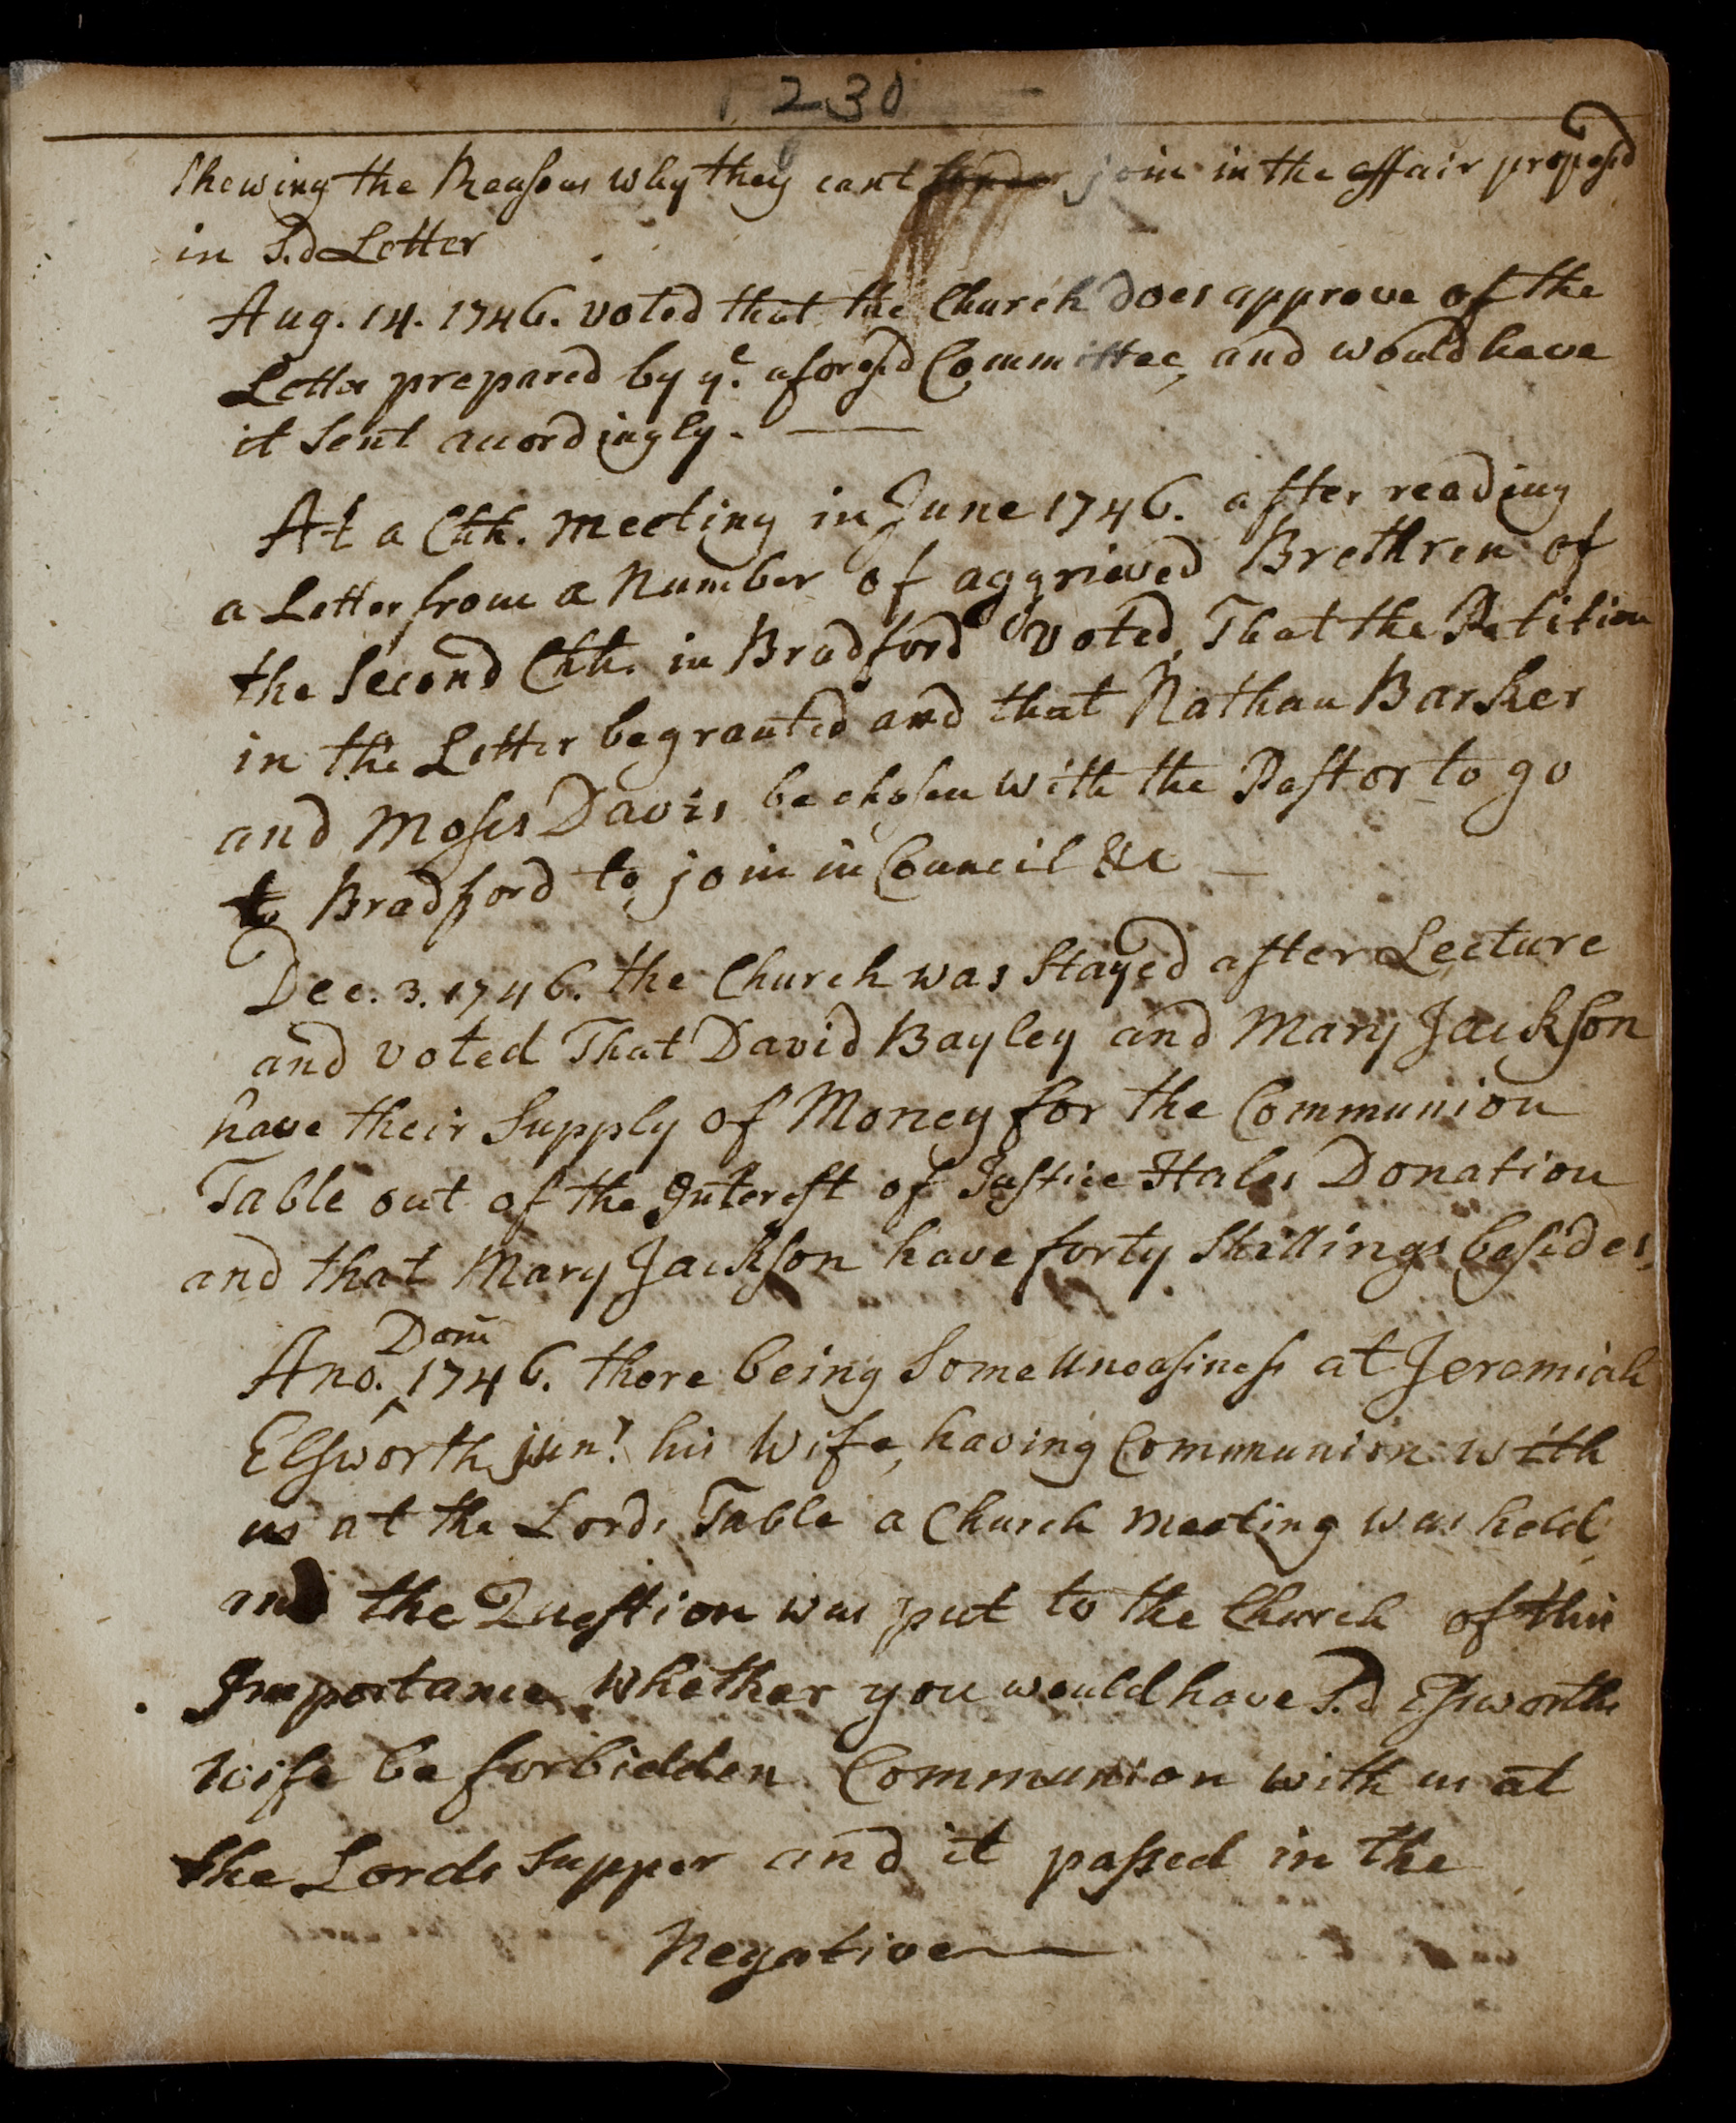 230
Shewing the Reasons why they cant join in the affair proposd
in S.d Letter
Aug. 14. 1746. voted that the Church does approve of the
Letter prepared by ye. aforesd Committee, and would have
it Sent accordingly. —
At a Chh. meeting in June 1746. after reading
a Letter from a Number of aggrieved Brethren of
the Second Chh. in Bradford voted, That the Petition
in the Letter be granted and that Nathan Barker
and Moses Davis be chosen with the Pastor to go
to Bradford to join in Council &c —
Dec. 3. 1746. the Church was Stayed after Lecture
and voted That David Bayley and Mary Jackson
have their Supply of Money for the Communion
Table out of the Interest of Justice Hales Donation
and that Mary Jackson have forty Shillings besides.
Ano. Dom 1746. there being Some Uneasiness at Jeremiah
Elsworth junr. his Wife, having Communion with
us at the Lords Table a Church meeting was held
and the Question was put to the Church of this
Importance Whether you would have S.d Elsworths
wife be forbidden Communion with us at
the Lords Supper and it passed in the
Negative —